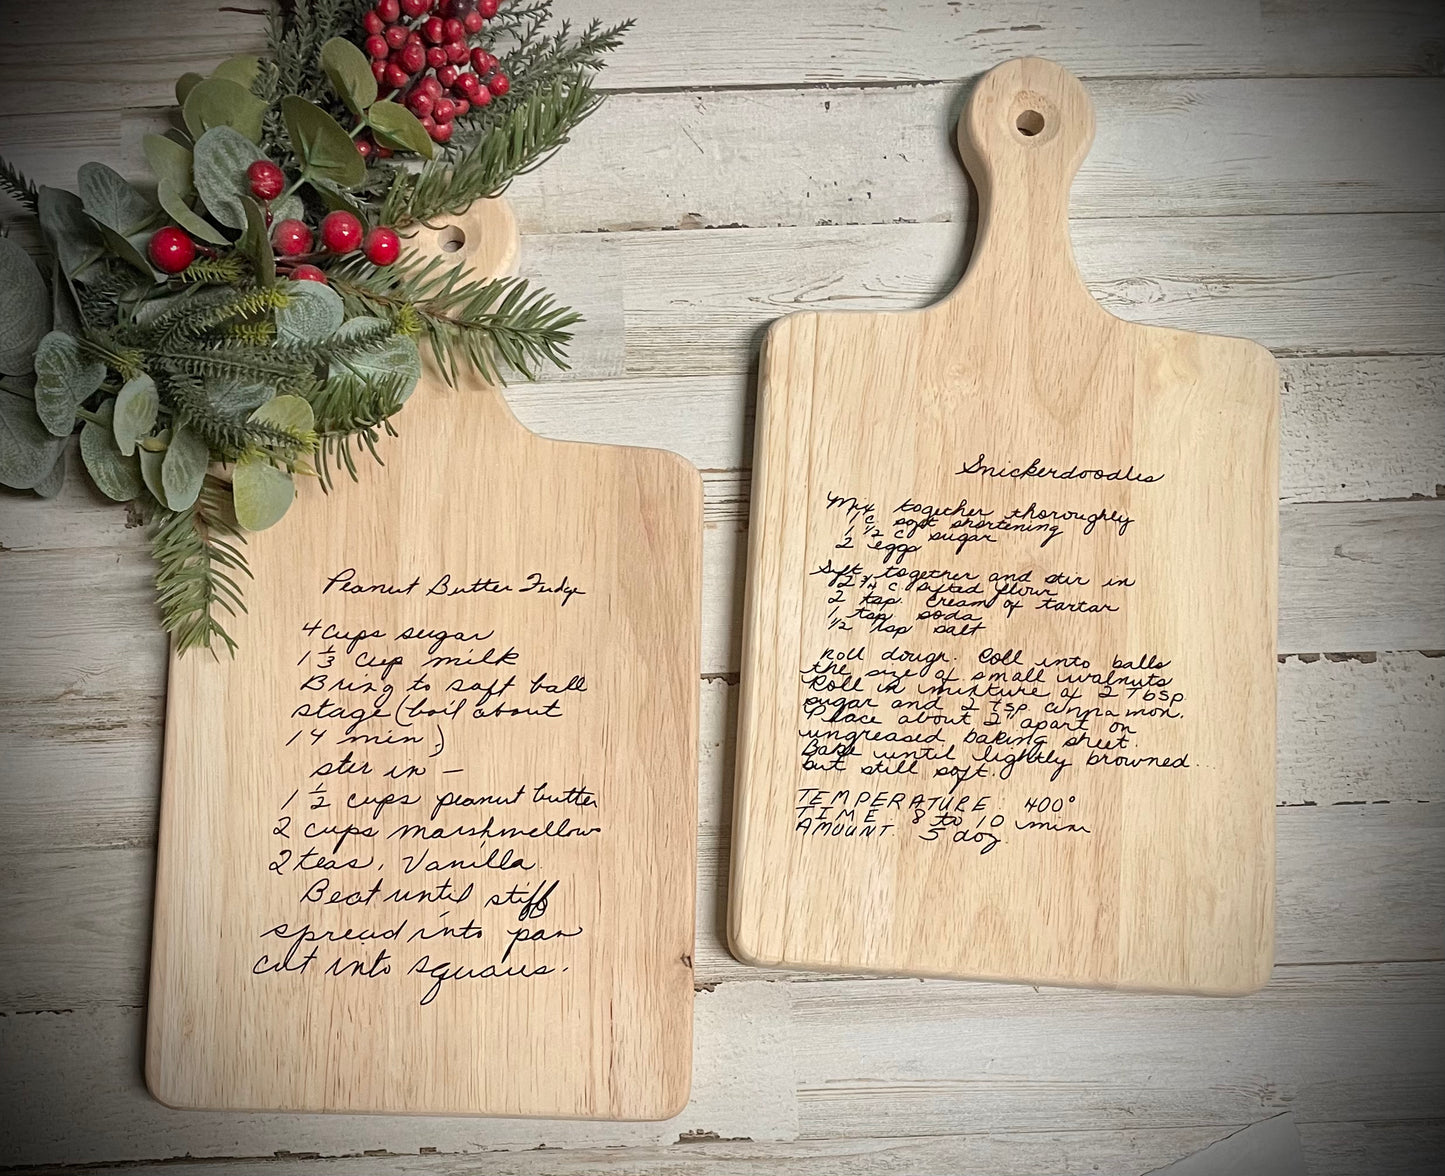 Peanut Butter Fudge
4 cups sugar
1 1/3 cup milk
Bring to soft ball
stage (boil about
14 min)
stir in —
1 1/2 cups peanut butter
2 cups marshmellow
2 teas. Vanilla
Beat until stiff
spread into pan
cut into squares.
Snickerdoodles
Mix together thoroughly
1 c soft shortening
1 1/2 c sugar
2 eggs
Sift together and stir in
2 3/4 c sifted flour
2 tsp. cream of tartar
1 tsp soda
1/2 tsp salt
Roll dough. Roll into balls
the size of small walnuts
Roll in mixture of 2 Tbsp
sugar and 2 tsp cinnamon.
Place about 2" apart on
ungreased baking sheet.
Bake until lightly browned...
but still soft.
TEMPERATURE: 400°
TIME: 8 to 10 min
AMOUNT: 5 doz.